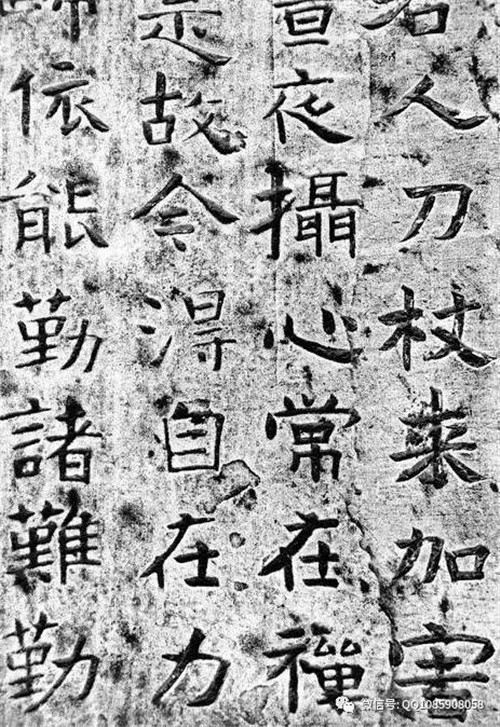 若人刀杖来加害
晝夜攝心常在禪
是故令得自在力
歸依能勤諸難勤
微信号: QQ1085908058